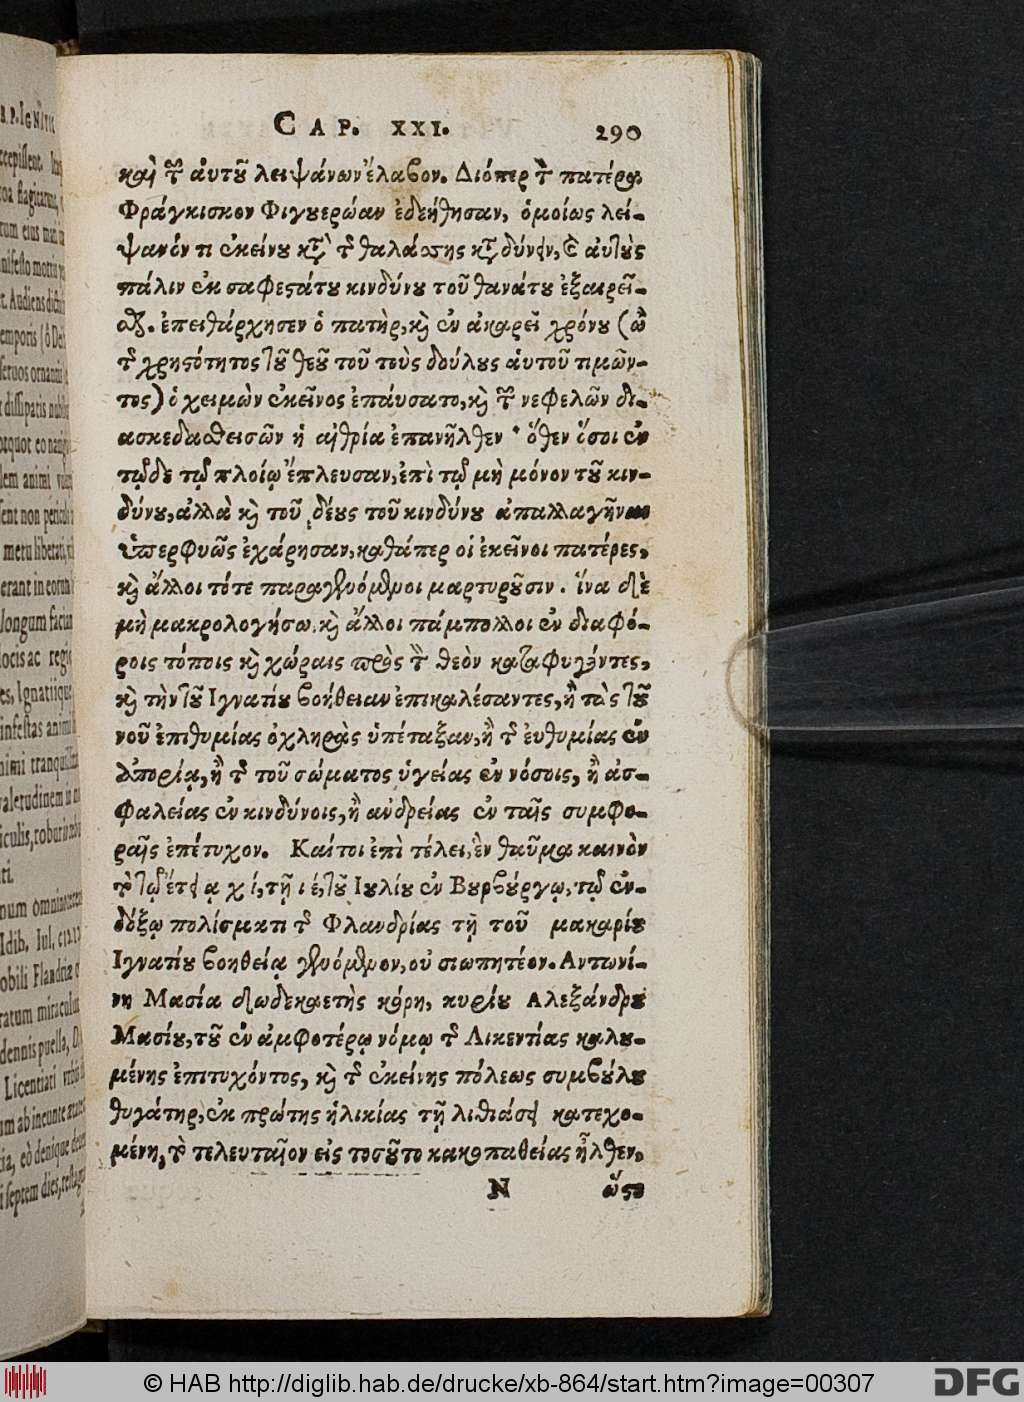 B. P. IGNATII
CAP. XXI. 290
καὶ τῶν ἀυτοῦ λειψάνων ἔλαβον. Διόπερ τὸν πατέρα
Φράγκισκον Φιγουερώαν ἐδεήθησαν, ὁμοίως λεί-
ψανόν τι ἐκείνου κατὰ τῆς θαλάσσης καταδύναι, καὶ αὐτοὺς
πάλιν ἐκ σαφεστάτου κινδύνου τοῦ θανάτου ἐξαιρεῖ-
σθαι. ἐπειθάρχησεν ὁ πατὴρ, καὶ ἐν ἀκαρεῖ χρόνου (ὢ
τῆς χρηστότητος τοῦ θεοῦ τοῦ τοὺς δούλους ἁυτοῦ τιμῶν-
τος) ὁ χειμὼν ἐκεῖνος ἐπάυσατο, καὶ τῶν νεφελῶν δι-
ασκεδασθεισῶν ἡ αἰθρία ἐπανῆλθεν · ὅθεν ὅσοι ἐν
τῷδε τῷ πλοίῳ ἔπλευσαν, ἐπὶ τῷ μὴ μόνον τοῦ κιν-
δύνου, ἀλλὰ καὶ τοῦ δέους τοῦ κινδύνου ἀπαλλαγῆναι
ὑπερφυῶς ἐχάρησαν, καθάπερ οἱ ἐκεῖνοι πατέρες,
καὶ ἄλλοι τότε παραγενόμενοι μαρτυροῦσιν. ἵνα δὲ
μὴ μακρολογήσω, καὶ ἄλλοι πάμπολλοι ἐν διαφό-
ροις τόποις καὶ χώραις πρὸς τὸν θεὸν καταφυγόντες,
καὶ τὴν τοῦ Ιγνατίου βοήθειαν ἐπικαλέσαντες, ἢ τὰς τοῦ
νοῦ ἐπιθυμίας ὀχληρὰς ὑπέταξαν, ἢ τῆς ἐυθυμίας ἐν
ἀπορίᾳ, ἢ τῆς τοῦ σώματος ὑγείας ἐν νόσοις, ἢ ἀσ-
φαλείας ἐν κινδύνοις, ἢ ἀνδρείας ἐν ταῖς συμφο-
ραῖς ἐπέτυχον. Καίτοι ἐπὶ τέλει, ἓν θαῦμα καινὸν
τὸ τῷ ἔτει α χ ί, τῇ ι έ, τοῦ Ιουλίου ἐν Βουρβούργῳ, τῷ ἐν-
δόξῳ πολίσματι τῆς Φλανδρίας τῇ τοῦ μακαρίου
Ιγνατίου βοηθείᾳ γενόμενον, οὐ σιωπητέον. Αντωνί-
νη Μασία δωδεκαετὴς κόρη, κυρίου Αλεξάνδρου
Μασίου, τοῦ ἐν ἀμφοτέρῳ νόμῳ τῆς Λικεντίας καλου-
μένης ἐπιτυχόντος, καὶ τῆς ἐκείνης πόλεως συμβούλου
θυγάτηρ, ἐκ πρώτης ἡλικίας τῇ λιθιάσει κατεχο-
μένη, τὸ τελευταῖον εἰς τοσοῦτο κακοπαθείας ἦλθεν,
N ὥστε
© HAB http://diglib.hab.de/drucke/xb-864/start.htm?image=00307
DFG